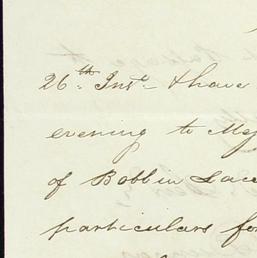 26th. Inst- & have
evening to Mej
of Bobbin Lace
particulars fo